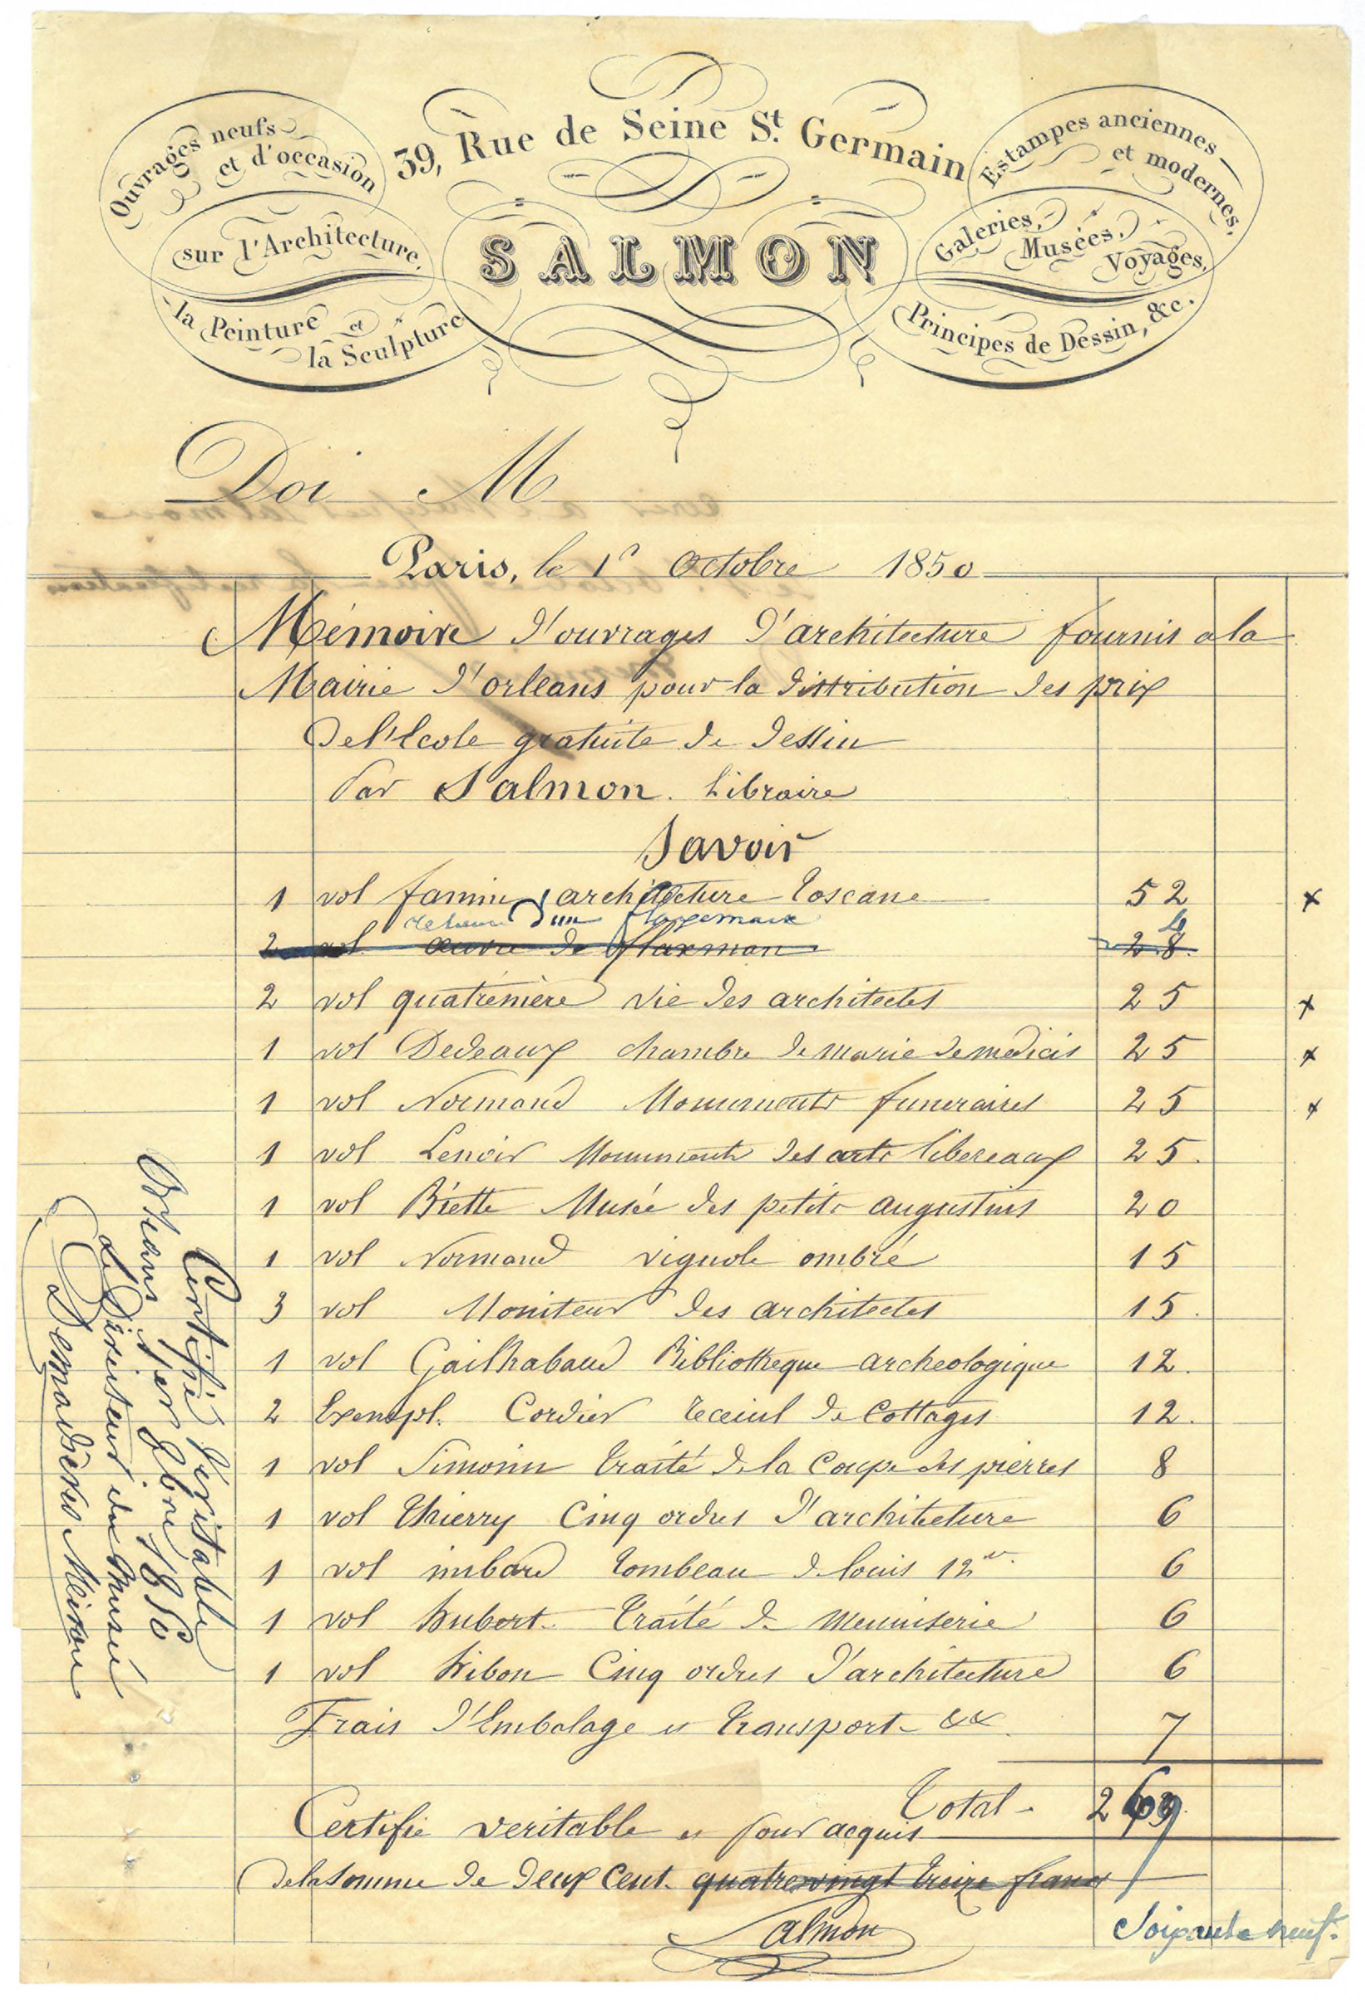 Ouvrages neufs
et d'occasion
sur l'Architecture,
la Peinture et
la Sculpture
39, Rue de Seine St. Germain
SALMON
Estampes anciennes
et modernes,
Galeries,
Musées,
Voyages,
Principes de Dessin, &c.
Doi M
Paris, le 1r Octobre 1850
Mémoire d'ouvrages d'architecture fournis a la
Mairie d'orleans pour la distribution des prix
de l'Ecole gratuite de dessin
Par Salmon. Libraire
Savoir
1 vol famin architecture toscane 52
2 vol œuvre de flaxman 28
2 vol quatrémère vie des architectes 25
1 vol Dedeaux chambre de marie de medicis 25
1 vol Normand Monuments funeraires 25
1 vol Lenoir Monuments des arts libereaux 25.
1 vol Biette Musée des petits augustins 20
1 vol Normand vignole ombré 15
3 vol Moniteur des architectes 15.
1 vol Gailhabaud Bibliotheque archeologique 12.
2 Exempl. Cordier receuil de Cottages 12.
1 vol Simonin traité de la Coupe des pierres 8
1 vol thierry Cinq ordres d'architecture 6
1 vol imbard tombeau de louis 12 6
1 vol hubert traité de menuiserie 6
1 vol hibon Cinq ordres d'architecture 6
Frais d'Embalage et transport 7
Total 269
Certifie veritable et pour acquis
de la somme de deux cent. quatre vingt treize francs
Soixante neuf.
Salmon
Certifié véritable
Orléans 1er 8bre 1850
Le Directeur du Musée